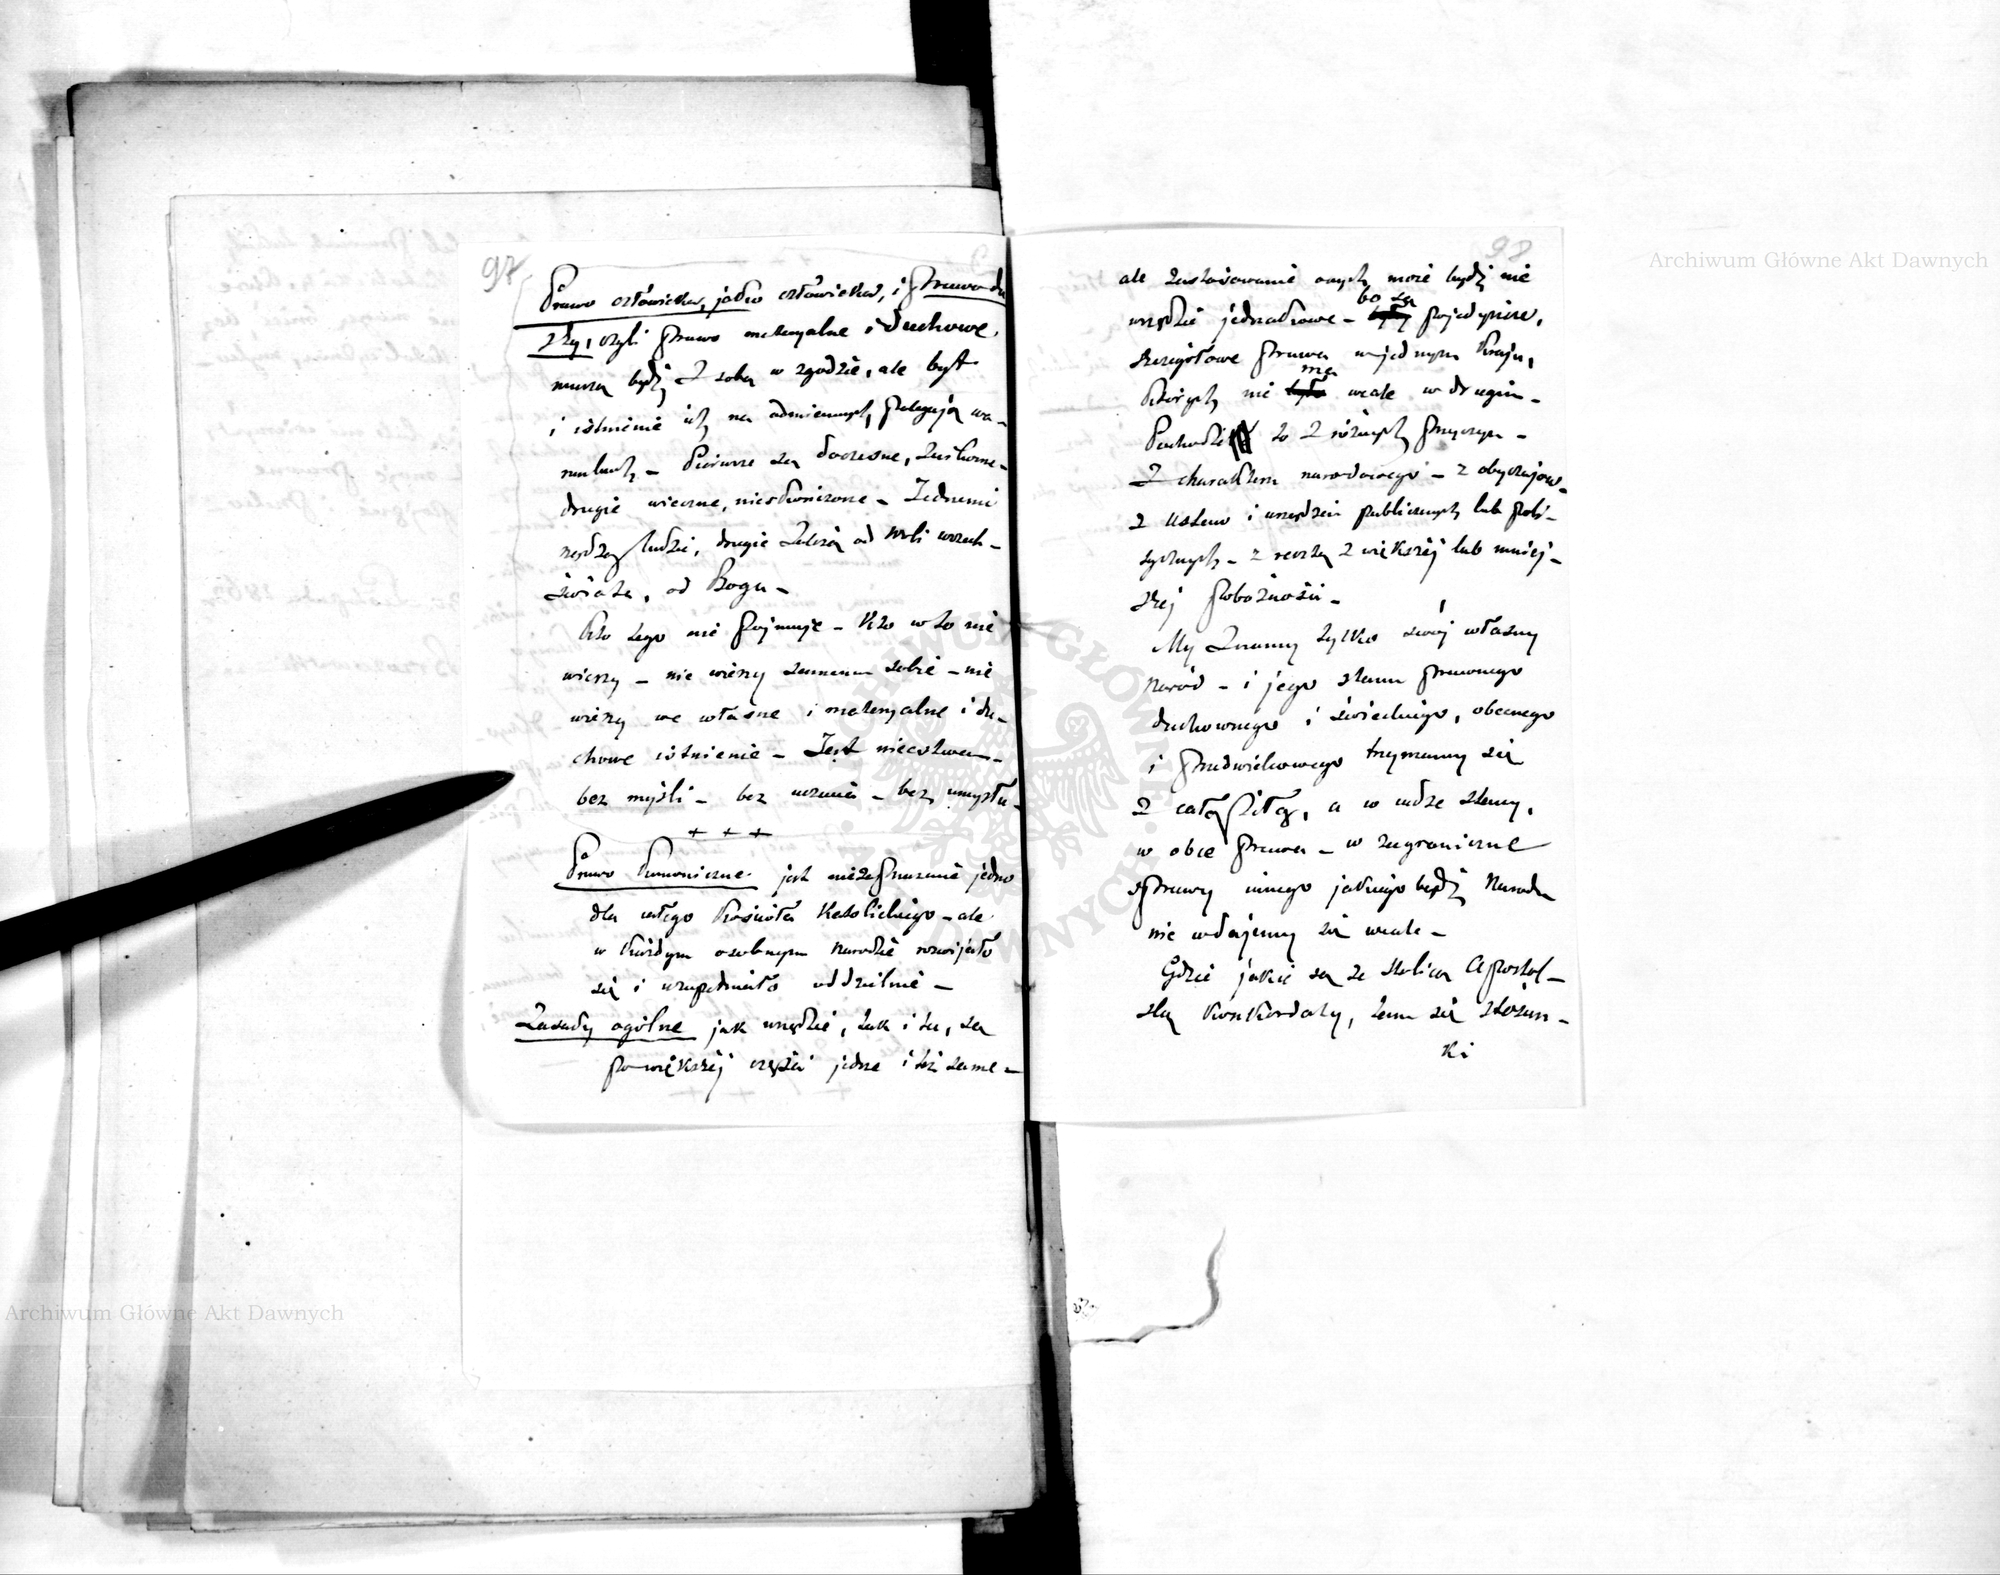 97
Prawo człowieka, jako człowieka, i prawo du
szy, czyli prawo materyalne i duchowe.
muszą bydź z sobą w zgodzie, ale byt
i istnienie ich na odmiennych polegają wa-
runkach - Pierwsze są doczesne,
drugie wieczne, nieskończone - Jednemi
rządzą ludzie, drugie zależą od woli wszech-
świata, od Boga -
Kto tego nie pojmuje - kto w to nie
wierzy - nie wierzy samemu sobie - nie
wierzy we własne i materyalne i du-
chowe istnienie - Jest niecztwem -
bez myśli - bez uczucia - bez umysłu -
+ + +
Prawo kanoniczne jest niezaprzeczenie jedno
dla całego kościoła katolickiego - ale
w każdym osobnym narodzie rozwijało
się i uzupełniało oddzielnie -
Zasady ogólne jak wszędzie, tak i tu, są
powiększej części jedne i też same -
98
ale zastosowanie onych może bydź nie
wszędzie jednakowe - bo są pojedyncze,
szczegółowe prawa w jednym kraju,
których nie ma wcale w drugim -
Pochodzi to z różnych przyczyn -
z charakteru narodowego - z obyczajów -
z ustaw i urządzeń publicznych lub poli-
tycznych - z resztą z większej lub mniej-
szej pobożności -
My znamy tylko swój własny
Naród - i jego stanu prawnego
duchownego i świeckiego, obecnego
i przedwiekowego trzymamy się
z całą siłą, a w cudze stany,
w obce prawa - w zagraniczne
sprawy innego jakiego bądź Narodu
nie wdajemy się wcale -
Gdzie jakie są ze stolicą Apostol-
ską konkordaty, tam się stosun-
ki
Archiwum Główne Akt Dawnych
Archiwum Główne Akt Dawnych
ARCHIWUM GŁÓWNE AKT DAWNYCH